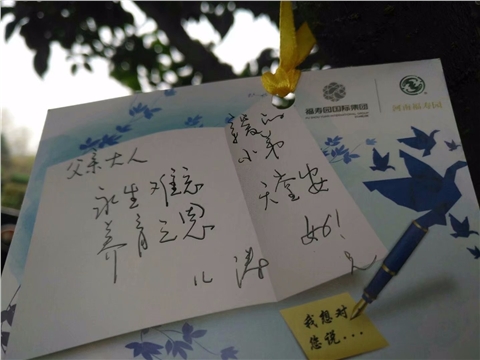 福寿园国际集团
河南福寿园
父亲大人
永生难忘
养育之恩
儿 涛
亲爱的
小弟
天堂安
好!
兄
我想对
您说...